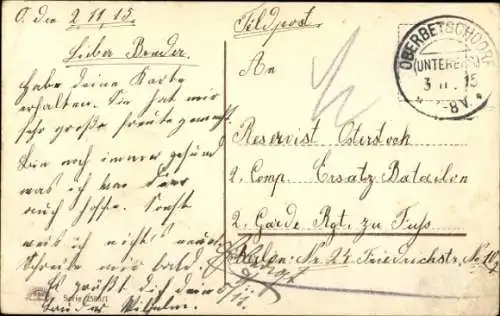 O. den 2.11.15.
Lieber Bruder.
Habe deine Karte
erhalten. Sie hat mir
sehr große Freude gemacht.
Bin noch immer gesund
was ich von Dier
auch hoffe. Sonst
weiß ich nichts neues
Schreibe mir bald.
Es grüßt dich dein
Bruder Wilhelm.
Serie 358/1
Feldpost
An
Reservist Osterloch
2. Comp. Ersatz Batailon
2. Garde Rgt. zu Fuss
Berlin. Nr. 24 Friedrichstr. No
OBERBETSCHDORF
(UNTERELS.)
3 11 15
-8V.